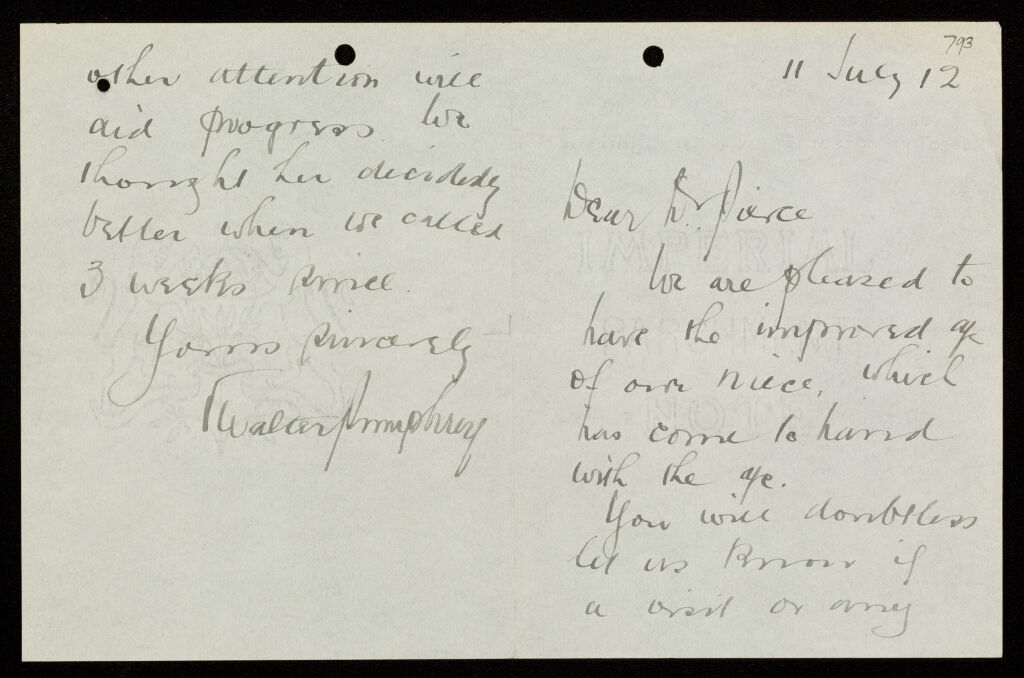 793
11 July 12
Dear Dr. Pierce
We are pleased to
have the improved a/c
of our niece, which
has come to hand
with the a/c.
You will doubtless
let us know if
a visit or any
other attention will
aid progress. We
thought her decidedly
better when we called
3 weeks since.
Yours sincerely
Walter Pumphrey